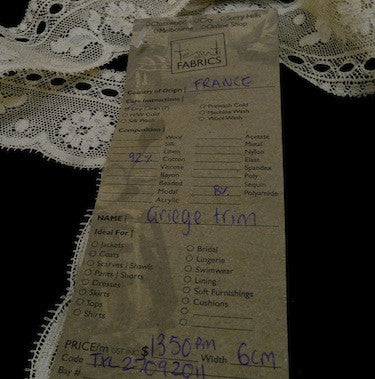 Chatswood City Surry Hills
Melbourne Shop
FABRICS
Country of Origin | FRANCE
Care Instructions |
Dry Clean (P)
HW Cold
Silk Wash
Prewash Cold
Machine Wash
WoolWash
Composition |
Wool
Silk
Linen
92% Cotton
Viscose
Rayon
Beaded
Modal
Acrylic
Acetate
Metal
Nylon
Elast
Spandex
Poly
Sequin
8% Polyamide
NAME | Griege trim
Ideal For |
Jackets
Coats
Scarves / Shawls
Pants / Shorts
Dresses
Skirts
Tops
Shirts
Bridal
Lingerie
Swimwear
Lining
Soft Furnishings
Cushions
PRICE/m GST INC $ 13.50 p.m Width 6cm
Code TXL27092011
Bay #